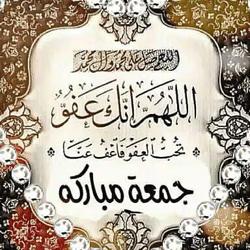 اللهم صل على محمد وآل محمد
اللهم إنك عفو
تحب العفو فاعف عنا
جمعة مباركه